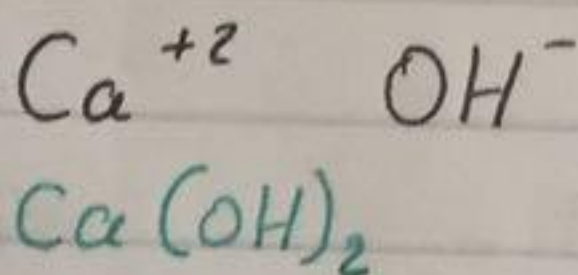 Ca⁺² OH⁻
Ca(OH)₂